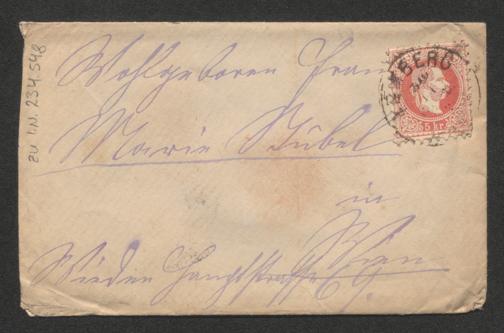 ZU I.N. 234.548
Wohlgeboren Frau
Marie Stübel
in
Wien
Wieden Hauptstrasse 69.
BERG
5 kr.